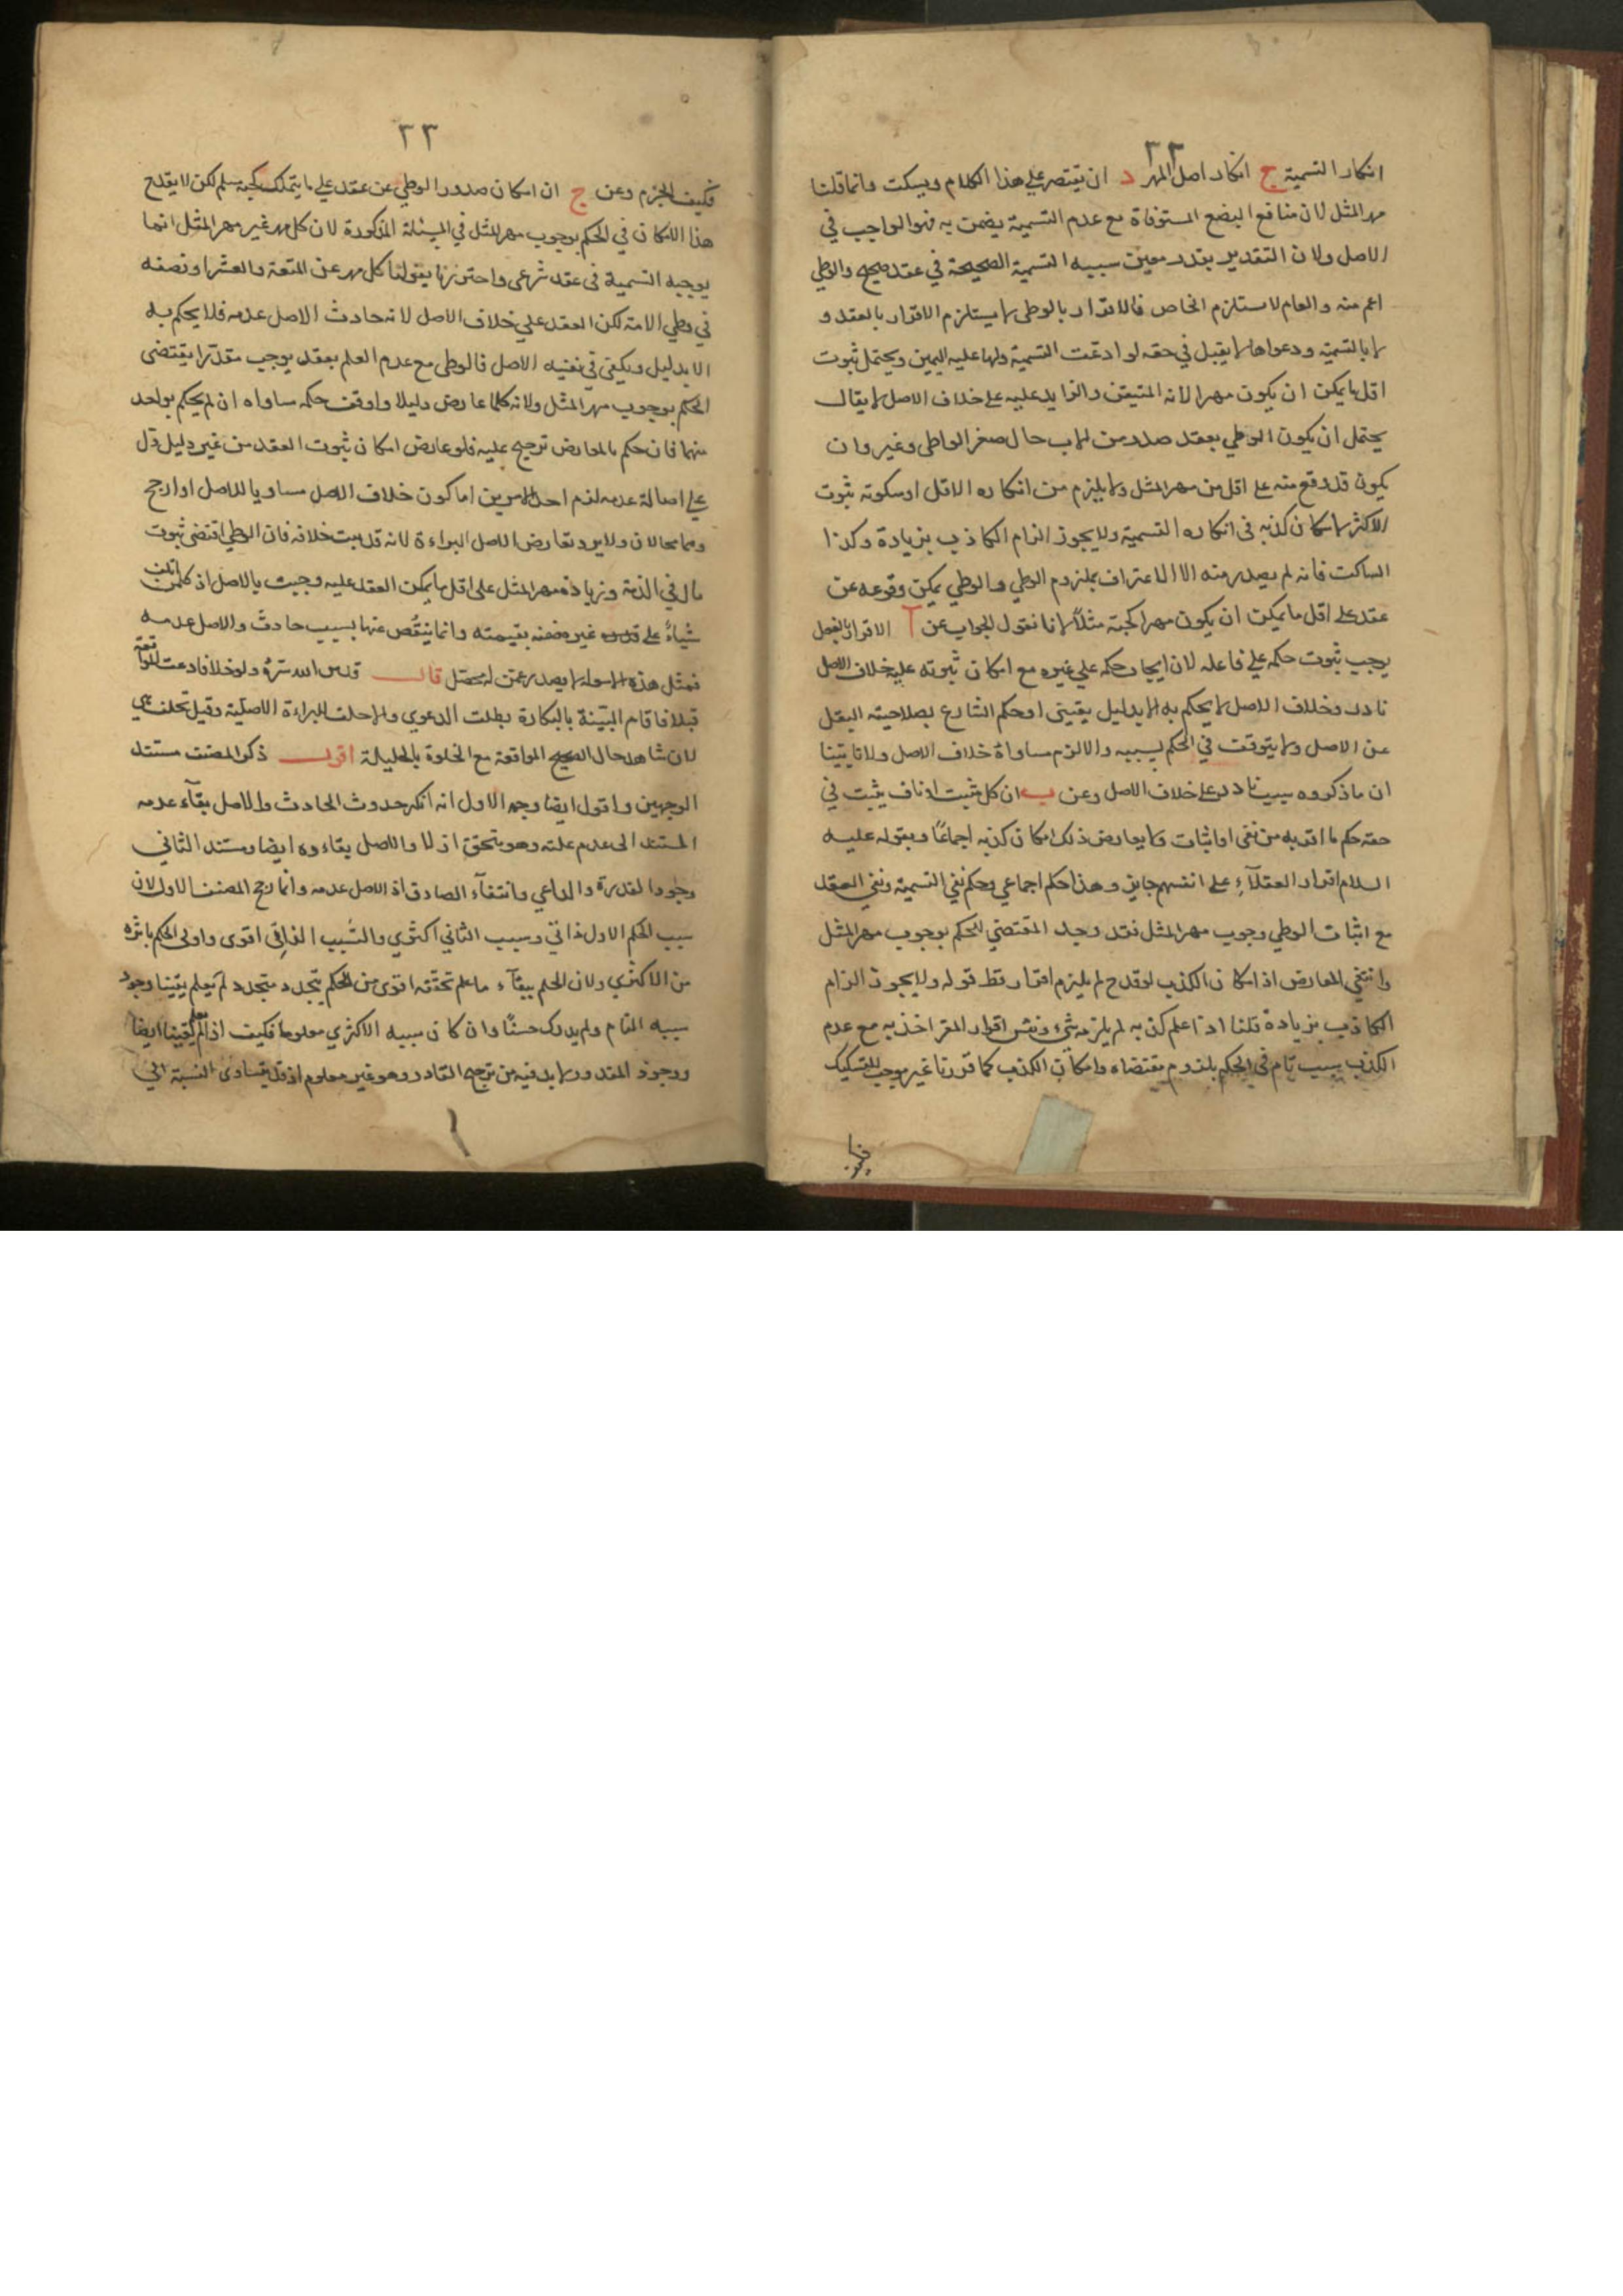 ٣٢
انكار التسمية ج انكار اصل المهر د ان يقتصر على هذا الكلام ويسكت وانما قلنا
مهر المثل لان منافع البضع المستوفاة مع عدم التسمية يضمن به فهو الواجب في
الاصل ولان التقدير بقدر معين سببه التسمية الصحيحة في عقد صحيح والوطي
اعم منه والعام لا يستلزم الخاص فالاقرار بالوطى لا يستلزم الاقرار بالعقد و
لا بالتسمية ودعواها لا يقبل في حقه لو ادعت التسمية ولها عليه اليمين ويحتمل ثبوت
اقل ما يمكن ان يكون مهرا لانه المتيقن والزايد عليه على خلاف الاصل لا يقال
يحتمل ان يكون الوطي بعقد صدر من الاب حال صغر الواطى وغيره وان
يكون قد وقع منه على اقل من مهر المثل ولا يلزم من انكاره الاقل او سكوته ثبوت
الاكثر لامكان كذبه فى انكاره التسمية ولا يجوز الزام الكاذب بزيادة وكذا
الساكت فانه لم يصدر منه الا الاعتراف بملزوم الوطي والوطي يمكن وقوعه عن
عقد على اقل ما يمكن ان يكون مهرا كحبة مثلاً لانا نقول الجواب عن آ الاقرار بالفعل
يوجب ثبوت حكمه على فاعله لان ايجاد حكمه علي غيره مع امكان ثبوته عليه خلاف الاصل
نادر وخلاف الاصل لا يحكم به الا بدليل يقيني او حكم الشارع بصلاحيته النقل
عن الاصل ولا يتوقف في الحكم لسببه والا لزم مساواة خلاف الاصل ولانا بينا
ان ما ذكروه سبب نادر على خلاف الاصل وعن ب ان كل مثبت او ناف يثبت في
حقه حكم ما اقر به من نفى او اثبات ولا يعارض ذلك امكان كذبه اجماعًا وبقوله عليه
السلام اقرار العقلآءِ على انفسهم جايز وهذا حكم اجماعي وحكم نفي التسمية ونفي العقد
مع اثبات الوطي وجوب مهر المثل فقد وجد المقتضي للحكم بوجوب مهر المثل
وانتفي المعارض اذ امكان الكذب لو قدح لم يلزم اقرار قط قوله ولا يجوز الزام
الكاذب بزيادة قلنا اذا علم كذبه لم يلزمه شيء ونفس اقرار المقر اخذ به مع عدم
الكذب سبب تام في الحكم بلزوم مقتضاه وامكان الكذب كما قررنا غير موجب للتشكيك
٣٣
فكيف الجزم وعن ج ان امكان صدور الوطي عن عقد علي ما يتملك كحبة مسلم لكن لا يقدح
هذا الامكان في الحكم بوجوب مهر المثل في المسئلة المذكورة لان كل مهر غير مهر المثل انما
يوجبه التسمية في عقد شرعى واحترزنا بقولنا كل مهر عن المتعة والعشر او نصفه
في وطي الامة لكن العقد علي خلاف الاصل لانه حادث الاصل عدمه فلا يحكم به
الا بدليل ويكفى فى نفيه الاصل فالوطى مع عدم العلم بعقد يوجب مقدّرا يقتضى
الحكم بوجوب مهر المثل ولانه كلما عارض دليلا واوقف حكمه ساواه ان لم يحكم بواحد
منهما فان حكم بالمعارض ترجح عليه فلو عارض امكان ثبوت العقد من غير دليل دل
على اصالة عدمه لزم احد الامرين اما كون خلاف الاصل مساويا للاصل او ارجح
وهما محالان ولا يرد تعارض الاصل البراءة لانه قد ثبت خلافه فان الوطي اقتضى ثبوت
مال في الذمة وزيادة مهر المثل على اقل ما يمكن العقد عليه وجبت بالاصل اذ كل من اتلف
شياءً على غيره ضمنه بقيمته وانما ينقُص عنها بسبب حادث والاصل عدمه
فمثل هذه الاسولة لا يصدر عمن له محصّل قال قدس الله سرهُ ولو خلا فادعت المواقعة
قبلا فاقام البيّنة بالبكارة بطلت الدعوي والا حلف البراءة الاصلية وقيل تحلف هي
لان شاهد حال الصحيح المواقعة مع الخلوة بالحليلة اقول ذكر المصنف مستند
الوجهين واقول ايضا وجه الاول انه انكر حدوث الحادث والاصل بقآء عدمه
المستند الى عدم علته وهو متحقق ازلا والاصل بقاءوه ايضا ومستند الثاني
وجود القدرة والداعي وانتفآء الصارف اذ الاصل عدمه وانما رجح المصنف الاول لان
سبب الحكم الاول ذاتي وسبب الثاني اكثري والسّبب الذاتي اقوى واولى الحكم باثره
من الاكثري ولان الحكم ببقآء ما علم تحققه اقوى من الحكم بتجدد متجدد لم يعلم يقينا وجود
سببه التام ولم يدرك حسًّا وان كان سببه الاكثري معلوما فكيف اذا لم يعلم يقينا ايضا
ووجود المقدور لا بد فيه من ترجيح القادر وهو غير معلوم اذ قد يتساوى النسبة الي